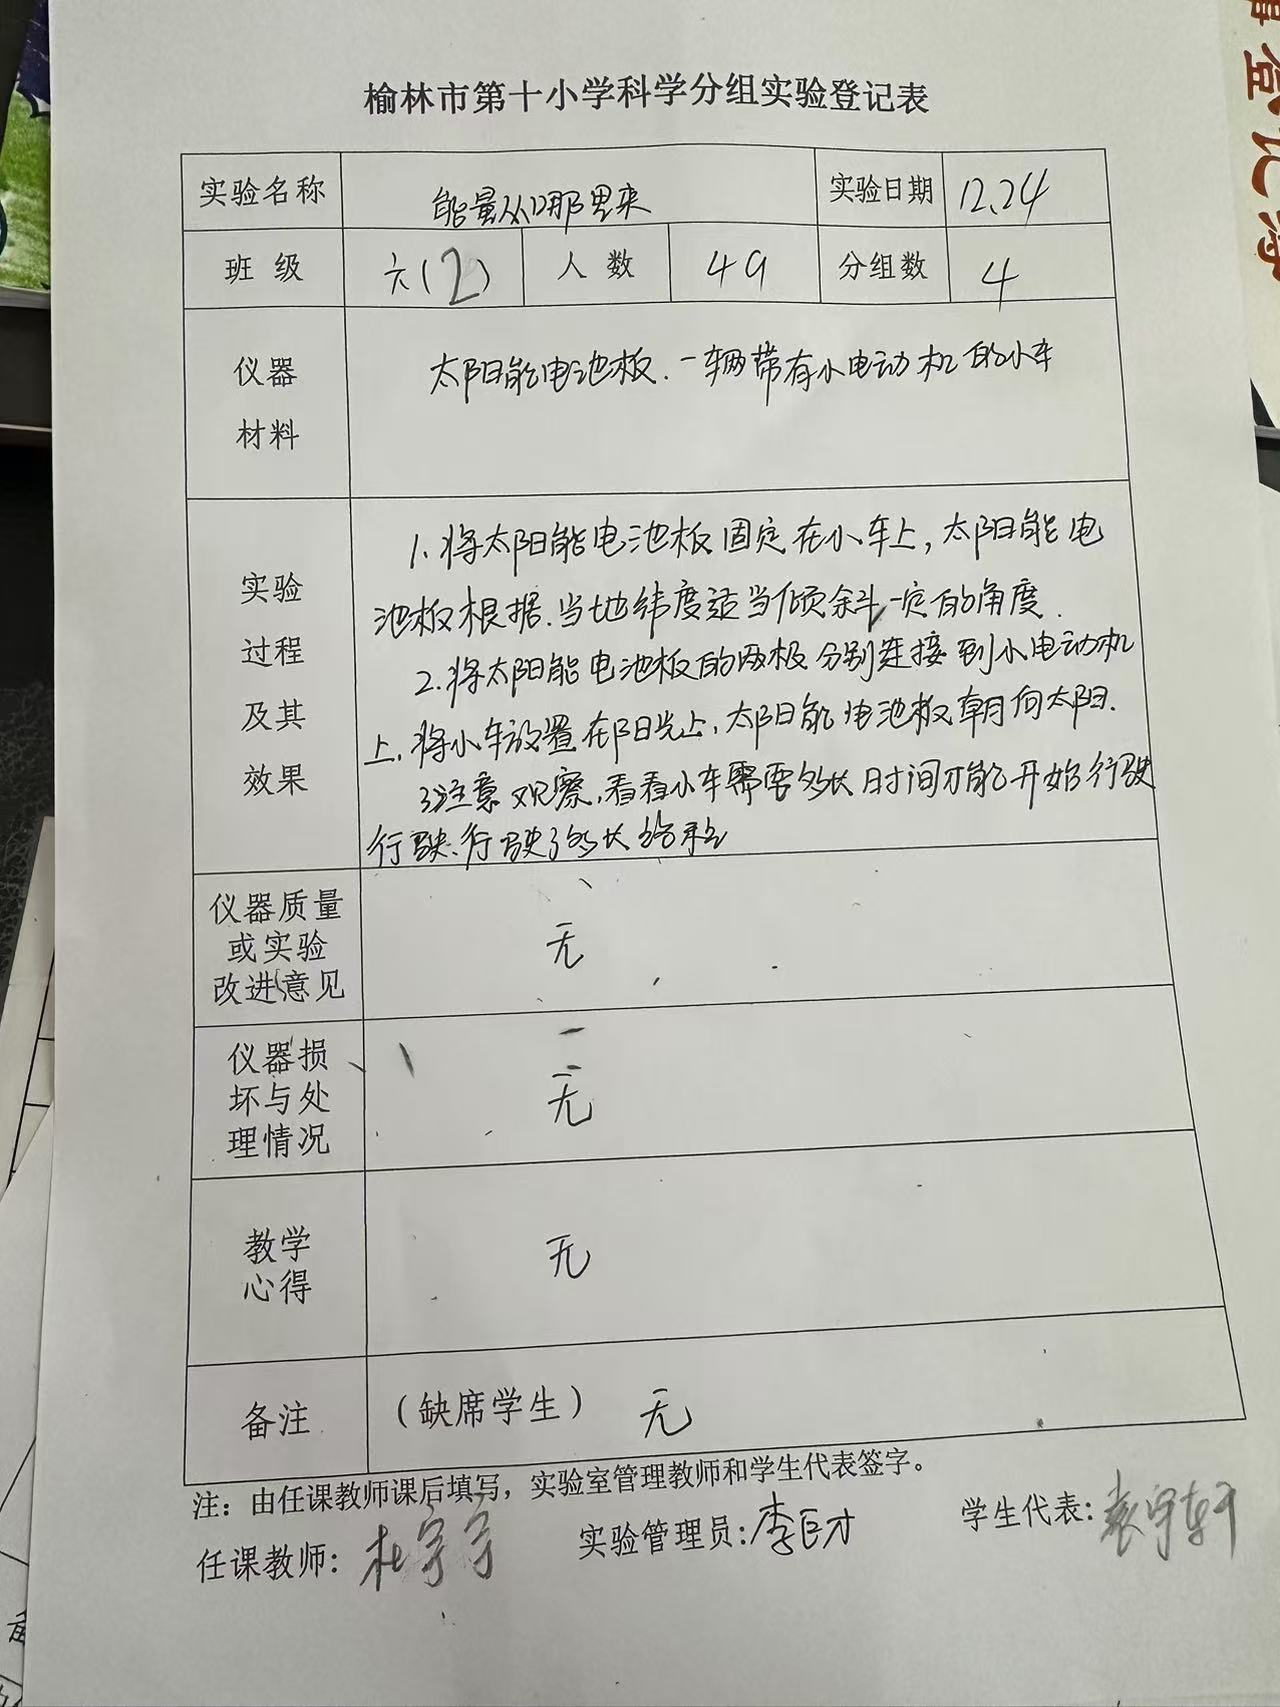 榆林市第十小学科学分组实验登记表
实验名称 能量从哪里来 实验日期 12.24
班 级 六(2) 人 数 49 分组数 4
仪器
材料
太阳能电池板.一辆带有小电动机的小车
实验
过程
及其
效果
1.将太阳能电池板固定在小车上,太阳能电
池板根据.当地纬度适当倾斜一定的角度.
2.将太阳能电池板的两极分别连接到小电动机
上.将小车放置在阳光上,太阳能电池板朝向太阳.
3注意观察,看看小车需要多长时间才能开始行驶
行驶、行驶了多长
仪器质量
或实验
改进意见
无
仪器损
坏与处
理情况
无
教学
心得
无
备注 (缺席学生) 无
注:由任课教师课后填写,实验室管理教师和学生代表签字。
任课教师: 实验管理员:李巨才 学生代表:袁宇轩
登记簿